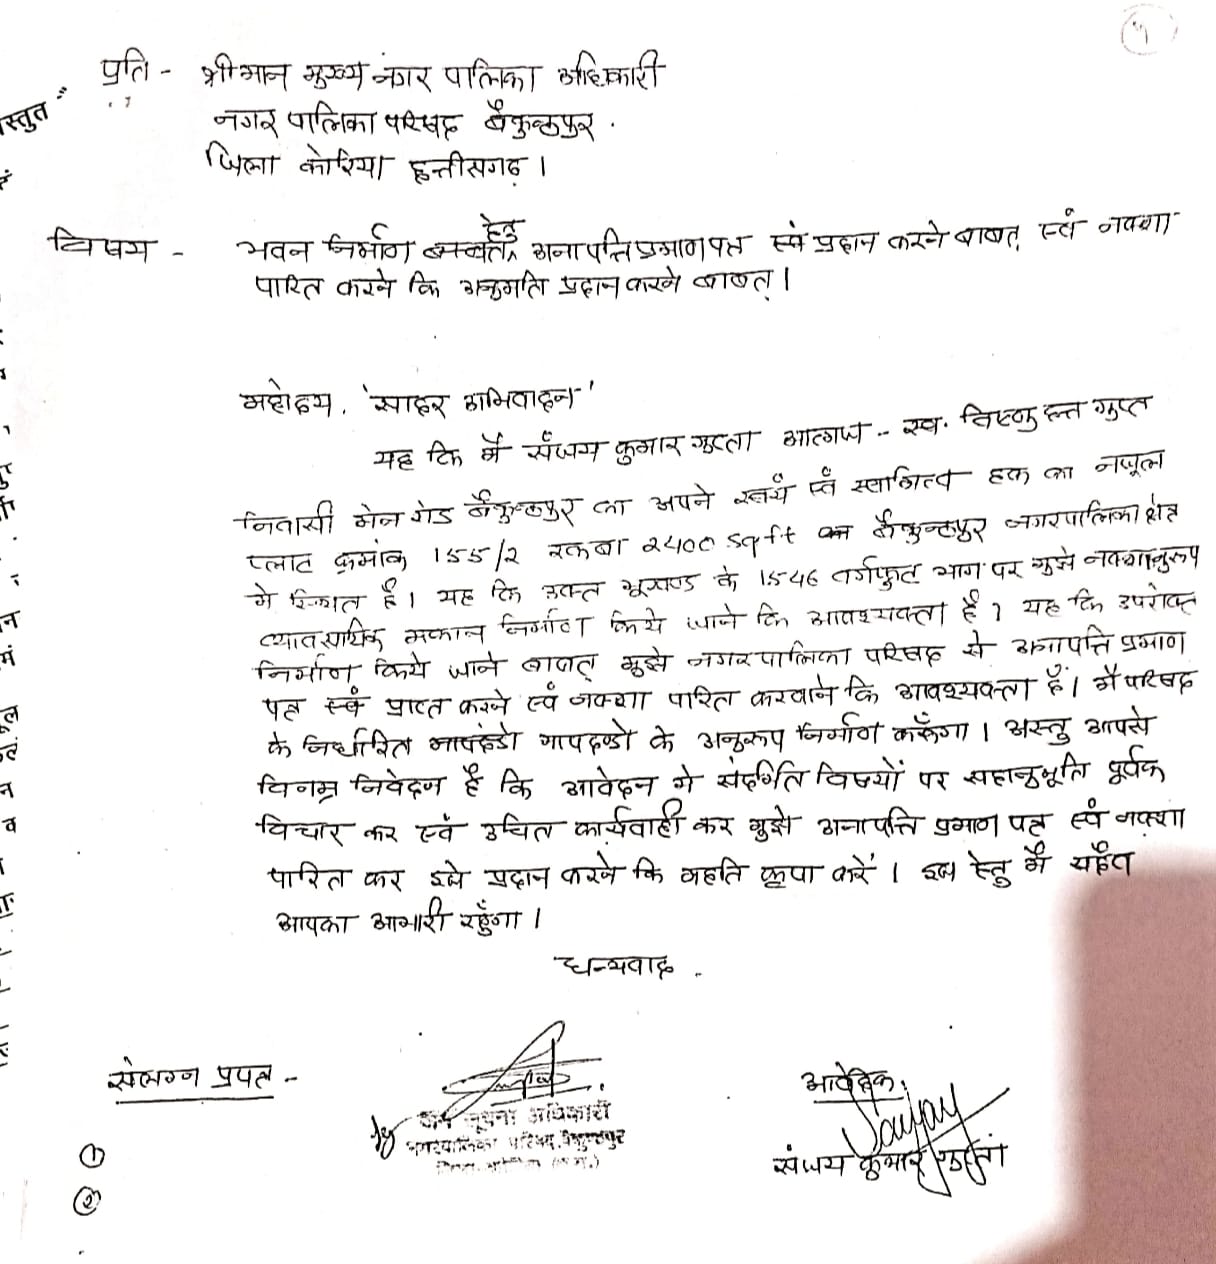 प्रति - श्रीमान मुख्य नगर पालिका अधिकारी
नगर पालिका परिषद बैकुण्ठपुर .
जिला कोरिया छत्तीसगढ़ ।
विषय - भवन निर्माण हेतु अनापत्ति प्रमाण पत्र एवं प्रदान करने बाबत् एवं नक्शा
पारित करने कि अनुमति प्रदान करने बाबत् ।
महोदय, 'सादर अभिवादन'
यह कि मैं संजय कुमार गुप्ता आत्मज - स्व. विष्णु दत्त गुप्त
निवासी मेन रोड बैकुण्ठपुर का अपने स्वयं एवं स्वामित्व हक का नजूल
प्लाट क्रमांक 155/2 रकबा 2400 sqft बैकुण्ठपुर नगरपालिका क्षेत्र
में स्थित है। यह कि उक्त भूखण्ड के 1546 वर्गफुट भाग पर मुझे नक्शानुरूप
व्यावसायिक मकान निर्माण किये जाने कि आवश्यक्ता है। यह कि उपरोक्त
निर्माण किये जाने बाबत् मुझे नगरपालिका परिषद से अनापत्ति प्रमाण
पत्र एवं प्राप्त करने एवं नक्शा पारित करवाने कि आवश्यक्ता है। मैं परिषद
के निर्धारित मापदण्डो के अनुरूप निर्माण करूँगा । अस्तु आपसे
विनम्र निवेदन है कि आवेदन मे संदर्भित विषयों पर सहानुभूति पूर्वक
विचार कर एवं उचित कार्यवाही कर मुझे अनापत्ति प्रमाण पत्र एवं नक्शा
पारित कर इसे प्रदान करने कि महति कृपा करें । इस हेतु मैं सदैव
आपका आभारी रहुँगा ।
धन्यवाद .
संलग्न प्रपत्र -
जन सूचना अधिकारी
नगरपालिका परिषद, बैकुण्ठपुर
आवेदक,
Sanjay
संजय कुमार गुप्ता
①
②